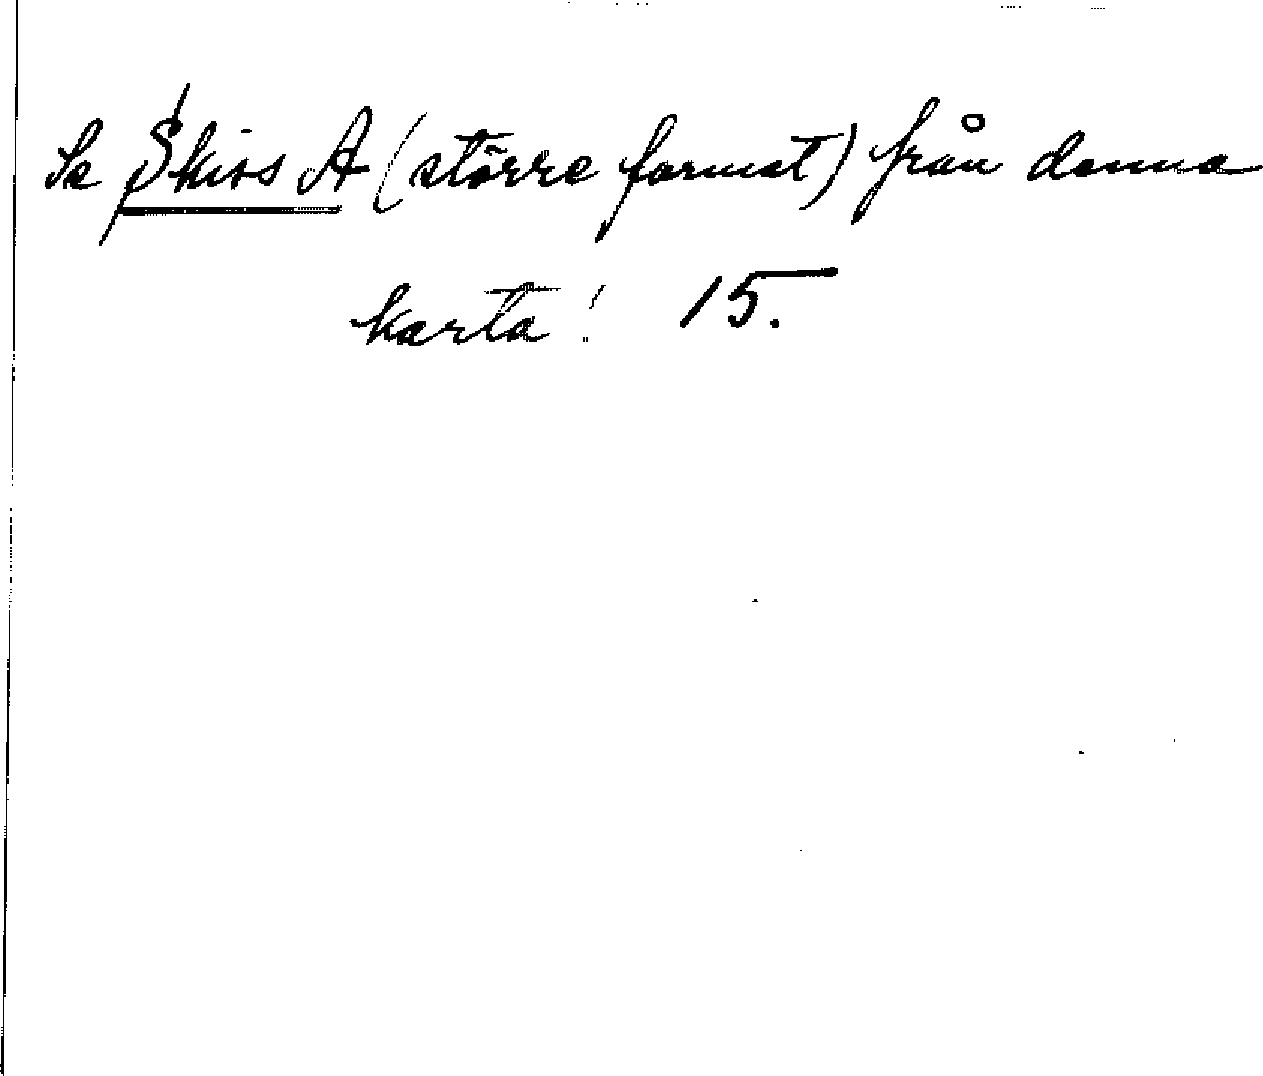 Se Skiss A (större format) från denna
karta! 15.